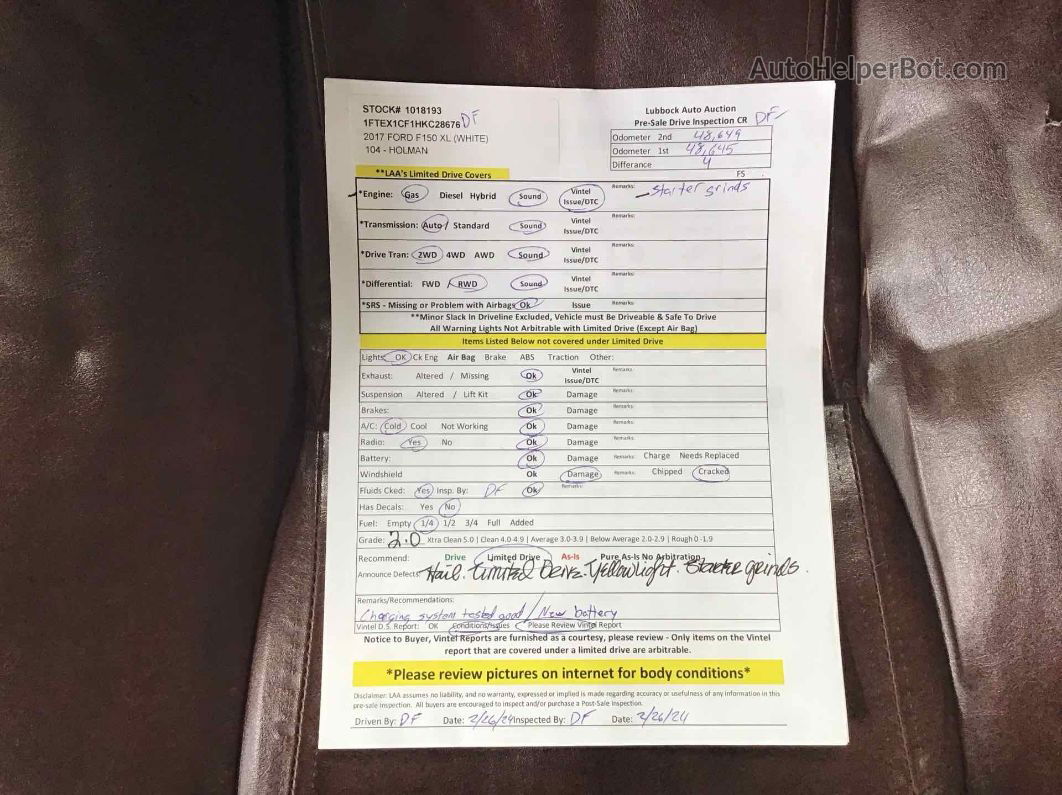 AutoHelperBot.com
STOCK# 1018193 DF
1FTEX1CF1HKC28676
2017 FORD F150 XL (WHITE)
104 - HOLMAN
Lubbock Auto Auction
Pre-Sale Drive Inspection CR DF
Odometer 2nd 48,649
Odometer 1st 48,645
Differance 4
FS
**LAA's Limited Drive Covers
*Engine: Gas Diesel Hybrid Sound Vintel Issue/DTC Remarks: Starter grinds
*Transmission: Auto / Standard Sound Vintel Issue/DTC Remarks:
*Drive Tran: 2WD 4WD AWD Sound Vintel Issue/DTC Remarks:
*Differential: FWD / RWD Sound Vintel Issue/DTC Remarks:
*SRS - Missing or Problem with Airbags Ok Issue Remarks:
**Minor Slack In Driveline Excluded, Vehicle must Be Driveable & Safe To Drive
All Warning Lights Not Arbitrable with Limited Drive (Except Air Bag)
Items Listed Below not covered under Limited Drive
Lights: OK Ck Eng Air Bag Brake ABS Traction Other:
Exhaust: Altered / Missing Ok Vintel Issue/DTC Remarks:
Suspension Altered / Lift Kit Ok Damage Remarks:
Brakes: Ok Damage Remarks:
A/C: Cold Cool Not Working Ok Damage Remarks:
Radio: Yes No Ok Damage Remarks:
Battery: Ok Damage Remarks: Charge Needs Replaced
Windshield Ok Damage Remarks: Chipped Cracked
Fluids Cked: Yes Insp. By: DF Ok Remarks:
Has Decals: Yes No
Fuel: Empty 1/4 1/2 3/4 Full Added
Grade: 2.0 Xtra Clean 5.0 | Clean 4.0-4.9 | Average 3.0-3.9 | Below Average 2.0-2.9 | Rough 0-1.9
Recommend: Drive Limited Drive As-Is Pure As-Is No Arbitration
Announce Defects: Hail. Limited Drive. Yellow light. Starter grinds.
Remarks/Recommendations:
Charging system tested good / New battery
Vintel D.S. Report: OK Conditions/Issues Please Review Vintel Report
Notice to Buyer, Vintel Reports are furnished as a courtesy, please review - Only items on the Vintel
report that are covered under a limited drive are arbitrable.
*Please review pictures on internet for body conditions*
Disclaimer: LAA assumes no liability, and no warranty, expressed or implied is made regarding accuracy or usefulness of any information in this
pre-sale inspection. All buyers are encouraged to inspect and/or purchase a Post-Sale Inspection.
Driven By: DF Date: 2/26/24 Inspected By: DF Date: 2/26/24